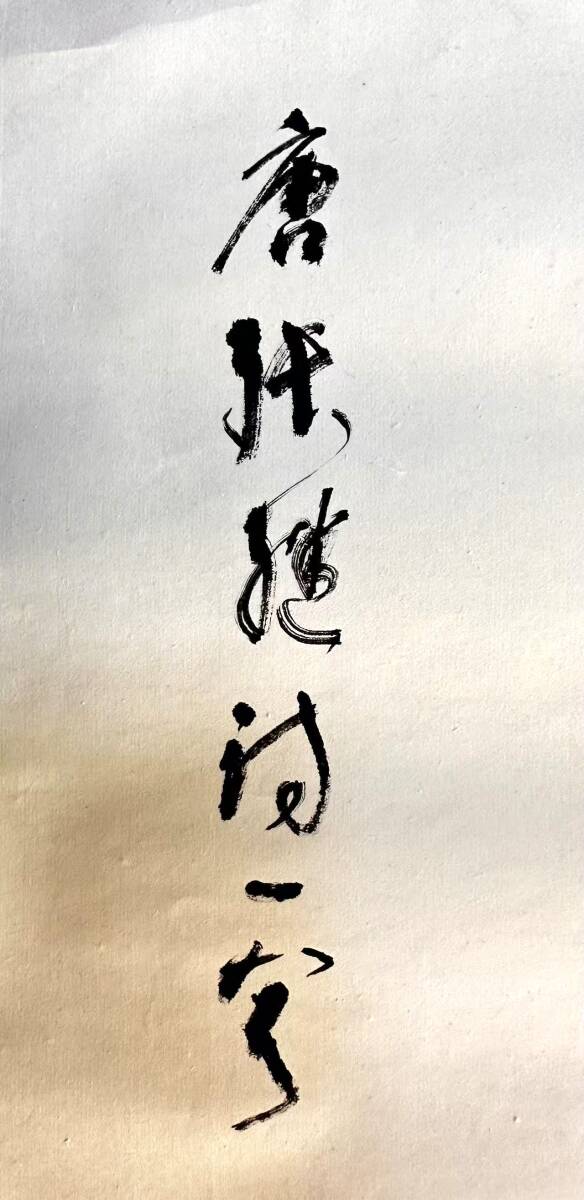 唐张继诗一首